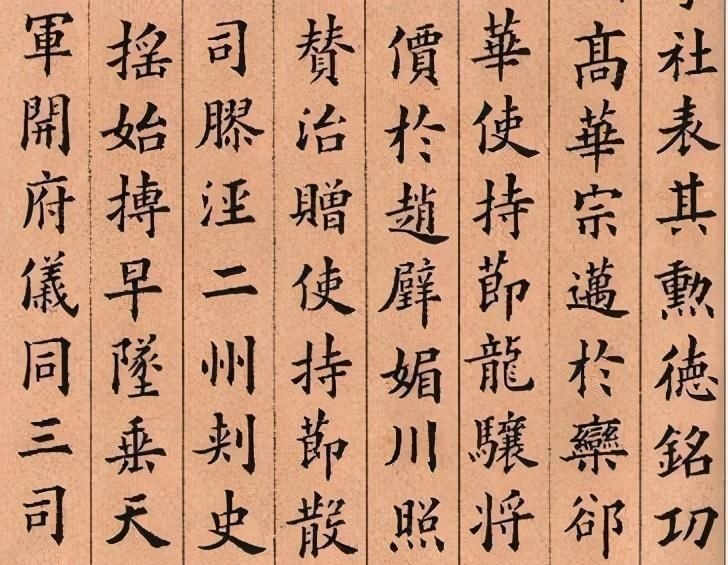 社表其勲徳銘功
髙華宗邁於欒郤
華使持節龍驤将
價於趙璧媚川照
賛治贈使持節散
司膠涇二州刺史
揺始摶早墜垂天
軍開府儀同三司